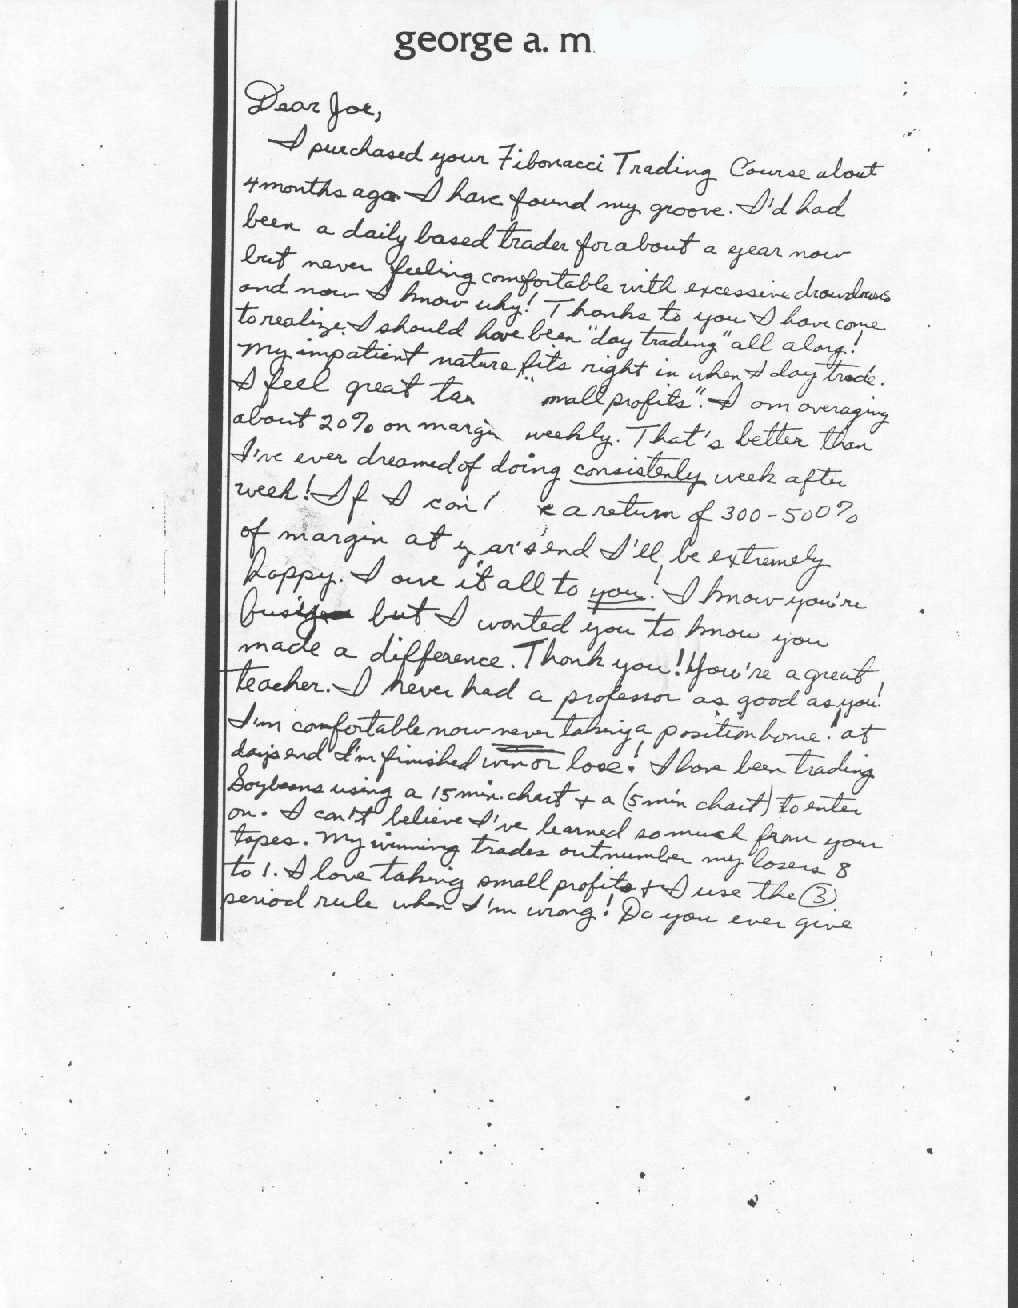 george a. m
Dear Joe,
I purchased your Fibonacci Trading Course about
4 months ago I have found my groove. I'd had
been a daily based trader for about a year now
but never feeling comfortable with excessive drawdowns
and now I know why! Thanks to you I have come
to realize I should have been "day trading" all along!
My impatient nature fits right in when I day trade.
I feel great "small profits". I am averaging
about 20% on margin weekly. That's better than
I've ever dreamed of doing consistenly week after
week! If I can a return of 300-500%
of margin at year's end I'll be extremely
happy. I owe it all to you! I know you're
busy but I wanted you to know you
made a difference. Thank you! You're a great
teacher. I never had a professor as good as you!
I'm comfortable now never taking a position home! at
days end I'm finished win or lose! I have been trading
Soybeans using a 15 min. chart + a (5 min chart) to enter
on. I can't believe I've learned so much from your
tapes. My winning trades outnumber my losers 8
to 1. I love taking small profits + I use the 3
period rule when I'm wrong! Do you ever give